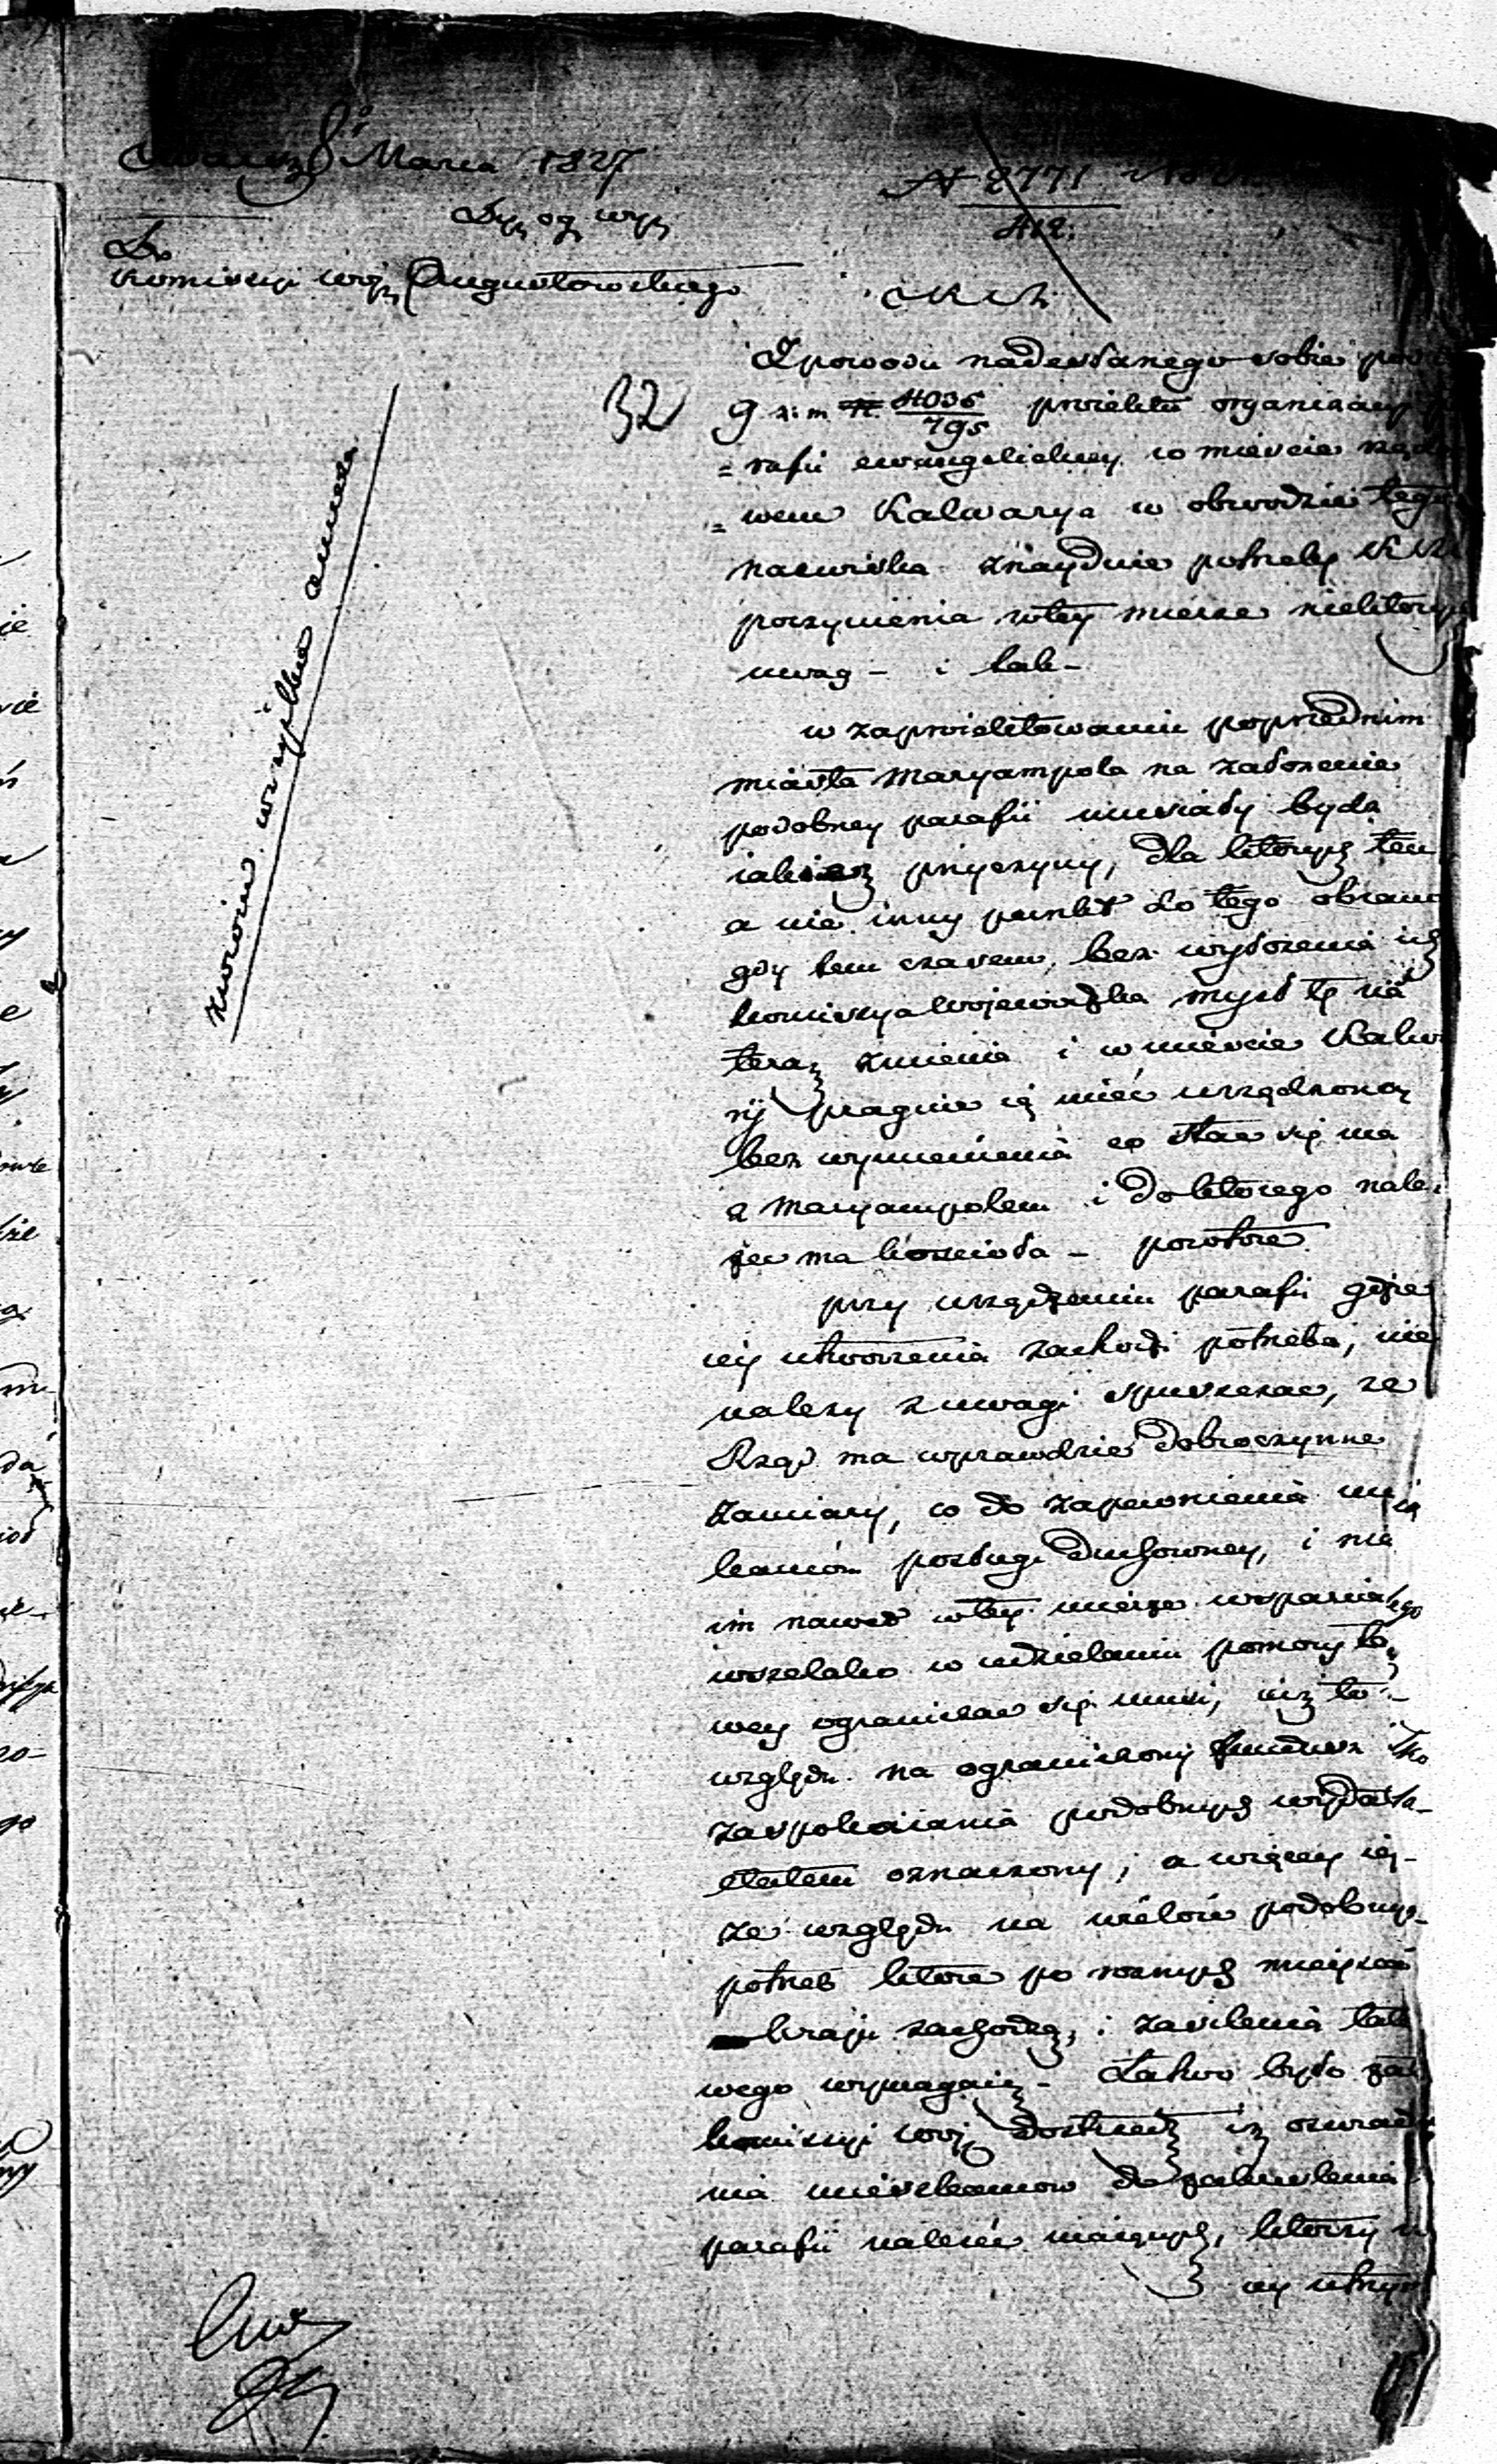 Marca 1827
N 2771
412.
Do
Komissyi wojew Augustowskiego
32
Z powodu nadesłanego sobie pod
9 z. m. N. 4035/795 proiektu organizacyi pa
= rafii ewangelickiey w mieście rządo
= wem Kalwarya w obwodzie tegoż
nazwiska znayduie potrzebę
poczynienia w tey mierze niektórych
uwag – i tak –
w zaproiektowaniu poprzednim
miasta Maryampola na założenie
podobney parafii musiały bydź
iakieś przyczyny, dla których ten
a nie inny punkt do tego obrano
gdy tem czasem, bez wyłożenia ich
Kommissya Wojewódzka myśl tę na
teraz zmienia i w mieście Kalwa
ryi pragnie ią mieć urządzoną
bez wymienienia co stać się ma
z Maryampolem i do którego nale
żeć ma kościoła – powtóre
przy urządzeniu parafii gdzie
iey utworzenia zachodzi potrzeba, nie
należy z uwagi spuszczać, że
Rząd ma wprawdzie dobroczynne
zamiary, co do zapewnienia
posługi duchowney, i nie
im nawet w tey mierze
wszelako w udzielaniu pomocy
wey ograniczać się musi, iuż to
względu na ograniczony fundusz
zaspokaiania podobnych
etatem oznaczony; a więcey ie
ze względu na wielość podobnych
potrzeb które po rożnych mieysca
kraju zachodzą, i zasilenia
wego wymagaią – Łatwo było
Kommissyi wojew dostrzedz iż
nia mieszkańcow do
parafii należeć maiących, którzy
iey utrzym
zwrócić wszystkie annexa